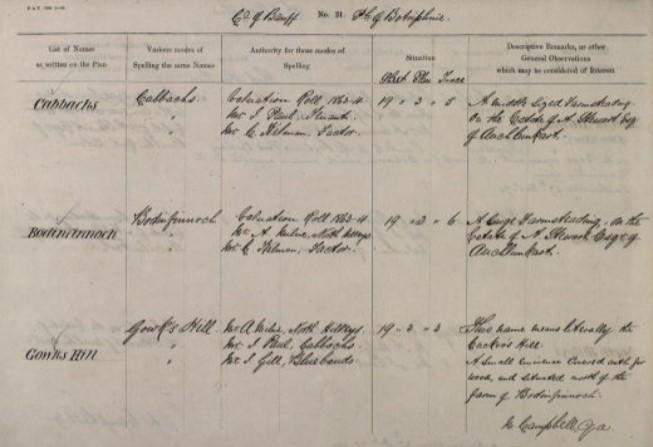 Co. of Banff No. 31. Ph. of Botriphnie.
List of Names
as written on the Plan
Various modes of
Spelling the same Names
Authority for those modes of
Spelling
Situation
Descriptive Remarks, or other
General Observations
which may be considered of Interest
Sheet Plan Trace
Cabbachs
Cabbachs
"
"
Valuation Roll 1863-4
Mr. J. Paul, Tenant
Mr. C. Kelman, Factor.
19 " 2 " 5
A middle sized Farmsteading
On the Estate of A. Stewart Esq
of Auchlunkart.
Bodinfinnoch
Bodinfinnoch
"
"
Valuation Roll 1863-4
Mr. A. Milne, North
Mr. C. Kelman, Factor.
19 " 2 " 6
A large Farmsteading, on the
Estate of A. Stewart Esqr. of
Auchlunkart.
Gowks Hill
Gowk's Hill
"
"
Mr A Milne, North
Mr. J. Paul, Cabbachs
Mr. J. Gill,
19 - 2 - 2
This name means literally the
Cuckoo's Hill
A Small eminence Covered with fir
wood, and situated north of the
farm of Bodinfinnoch.
Campbell